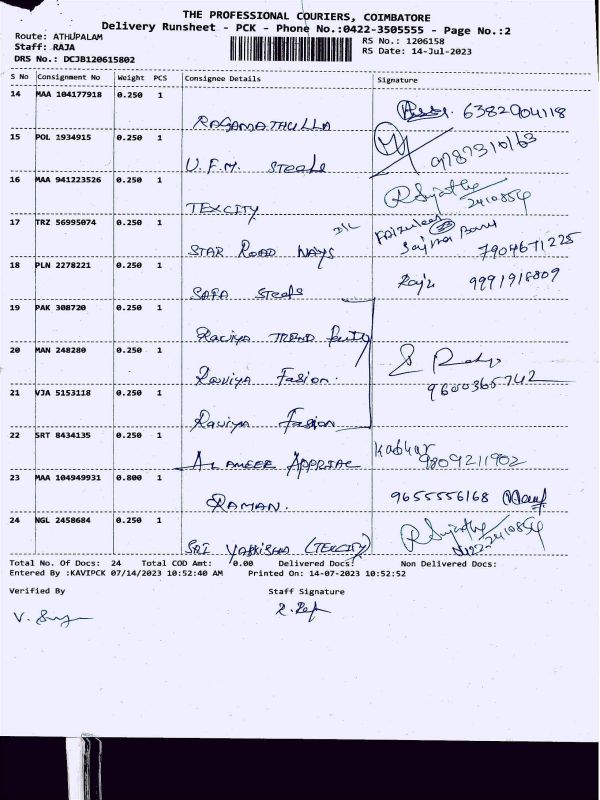 THE PROFESSIONAL COURIERS, COIMBATORE
Delivery Runsheet - PCK - Phone No.:0422-3505555 - Page No.:2
Route: ATHUPALAM
RS No.: 1206158
Staff: RAJA
RS Date: 14-Jul-2023
DRS No.: DCJB120615802
S No Consignment No Weight PCS Consignee Details Signature
14 MAA 104177918 0.250 1 6382904118
15 POL 1934915 0.250 1 U.F.M. Steels 9787310163
16 MAA 941223526 0.250 1 TEXCITY 2410854
17 TRZ 56995074 0.250 1 STAR ROAD WAYS 7904671225
18 PLN 2278221 0.250 1 SAFA Steels 9991918809
19 PAK 308720 0.250 1 Raviya TREND
20 MAN 248280 0.250 1 Raviya Fasion. 9600365742
21 VJA 5153118 0.250 1 Raviya Fasion
22 SRT 8434135 0.250 1 AL AMEER 9809211902
23 MAA 104949931 0.800 1 RAMAN. 9655556168
24 NGL 2458684 0.250 1 SRI (TEXCITY) 2410854
Total No. Of Docs: 24 Total COD Amt: 0.00 Delivered Docs: Non Delivered Docs:
Entered By :KAVIPCK 07/14/2023 10:52:40 AM Printed On: 14-07-2023 10:52:52
Verified By Staff Signature